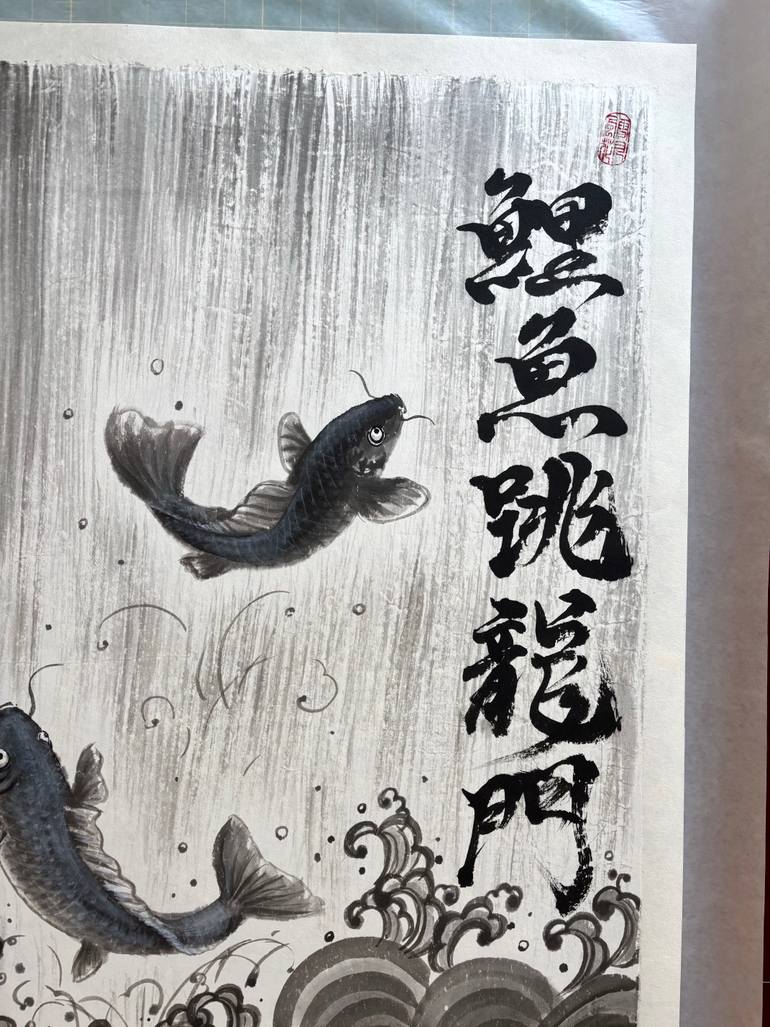 鯉魚跳龍門